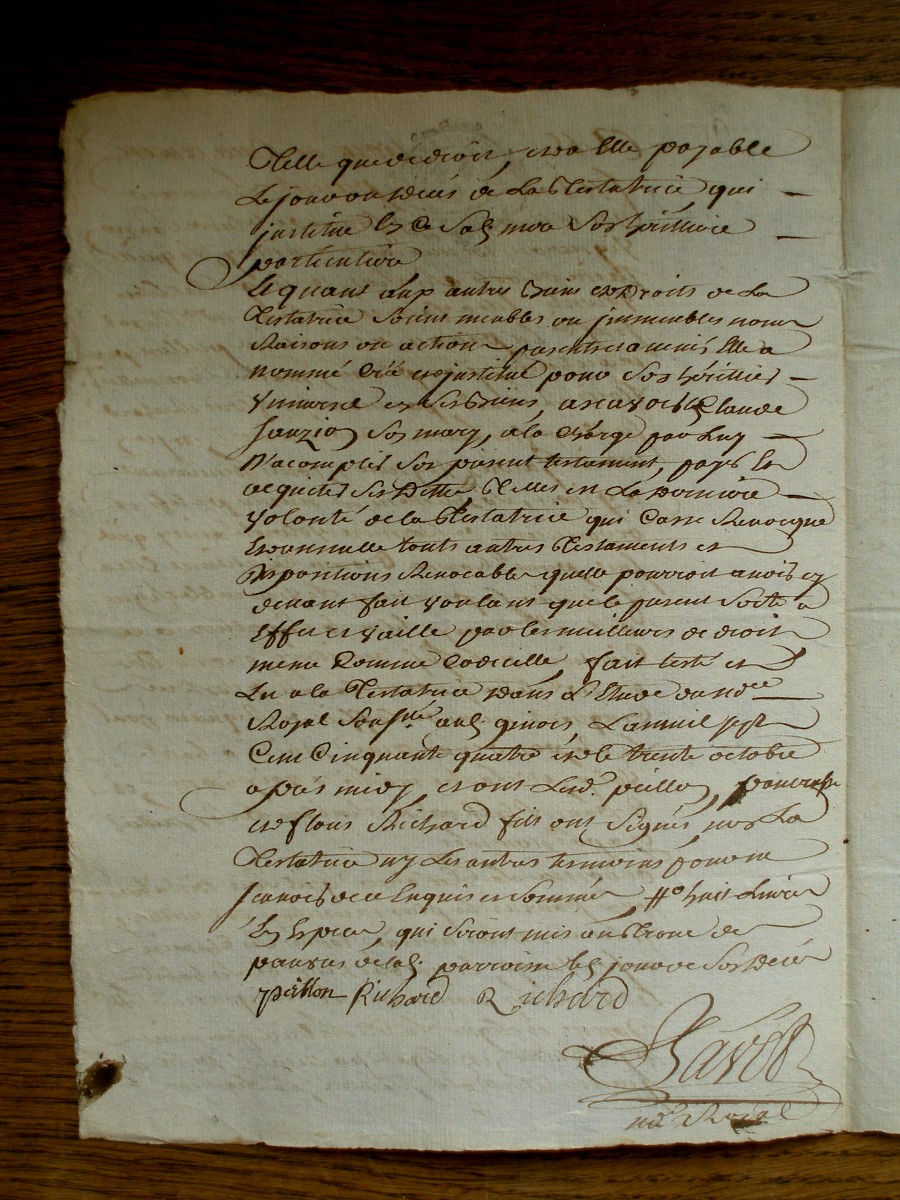 telle que de droit, et a elle payable
le jour du décés de la testatrice qui
justitue en ce sad. mere son héritiere
particuliere
Et quant aux autres biens et droits de la
testatrice soient meubles ou jmmeubles noms
raisons ou actions presents et a venir Elle a
nommé créé et justitué pour son héritier
vniversel en ses biens, a scavoir led. Claude
son mary, a la charge par luy
d'acomplir son présent testament, payer et
acquiter ses dettes, telle est la derniere
volonté de la testatrice qui casse revocque
et annulle touts autres testaments et
dispositions revocables quelle pourroit avoir cy
devant fait voulant que le present sorte a
effet et vaille par les meilleurs de droit
meme comme codicille, fait testé et
lu a la testatrice dans l'Etude du nore
Royal sousné aud. ginois, l'an mil sept
cent cinquante quatre et le trente octobre
aprés midy, et ont lesd. peillon,
et flous Richard fils ont signés, non la
testatrice ny les autres temoins pour ne
scavoir de ce enquis et sommés huit livres
en especes qui seront mis au trone des
pauvres de lad. parroisse led. jour de son décés
peillon Richard Richard

nore Royal